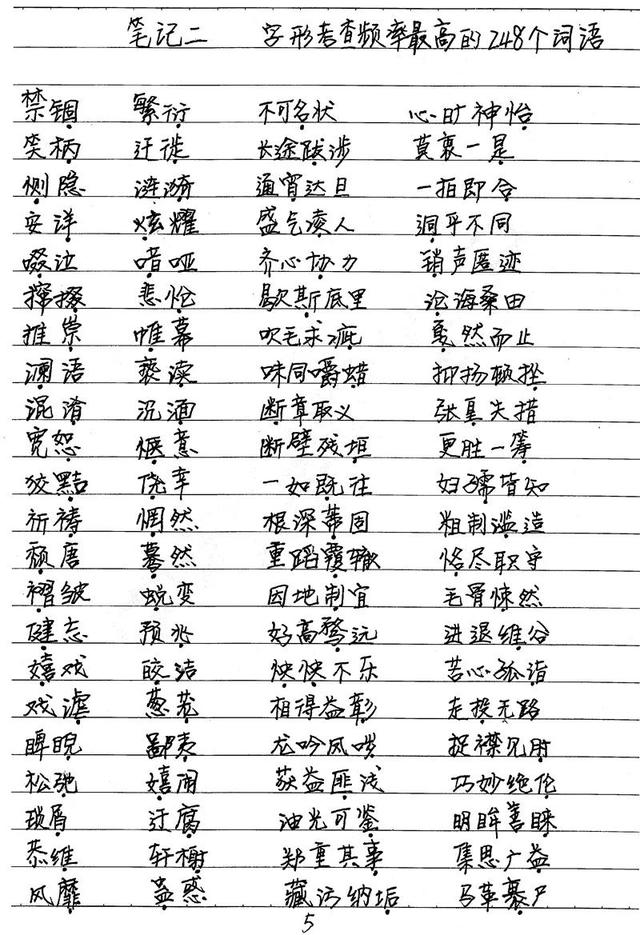 笔记二 字形考查频率最高的248个词语
禁锢 繁衍 不可名状 心旷神怡
笑柄 迁徙 长途跋涉 莫衷一是
恻隐 涟漪 通宵达旦 一拍即合
安详 炫耀 盛气凌人 迥乎不同
啜泣 喑哑 齐心协力 销声匿迹
撺掇 悲怆 歇斯底里 沧海桑田
推崇 帷幕 吹毛求疵 戛然而止
谰语 亵渎 味同嚼蜡 抑扬顿挫
混淆 沉湎 断章取义 张皇失措
宽恕 惬意 断壁残垣 更胜一筹
狡黠 侥幸 一如既往 妇孺皆知
祈祷 惘然 根深蒂固 粗制滥造
颓唐 蓦然 重蹈覆辙 恪尽职守
褶皱 蜕变 因地制宜 毛骨悚然
健忘 预兆 好高骛远 进退维谷
嬉戏 皎洁 怏怏不乐 苦心孤诣
戏谑 葱茏 相得益彰 走投无路
睥睨 鄙夷 龙吟凤哕 捉襟见肘
松弛 嬉闹 获益匪浅 巧妙绝伦
琐屑 迂腐 油光可鉴 明眸善睐
恭维 轩榭 郑重其事 集思广益
风靡 蛊惑 藏污纳垢 马革裹尸
5